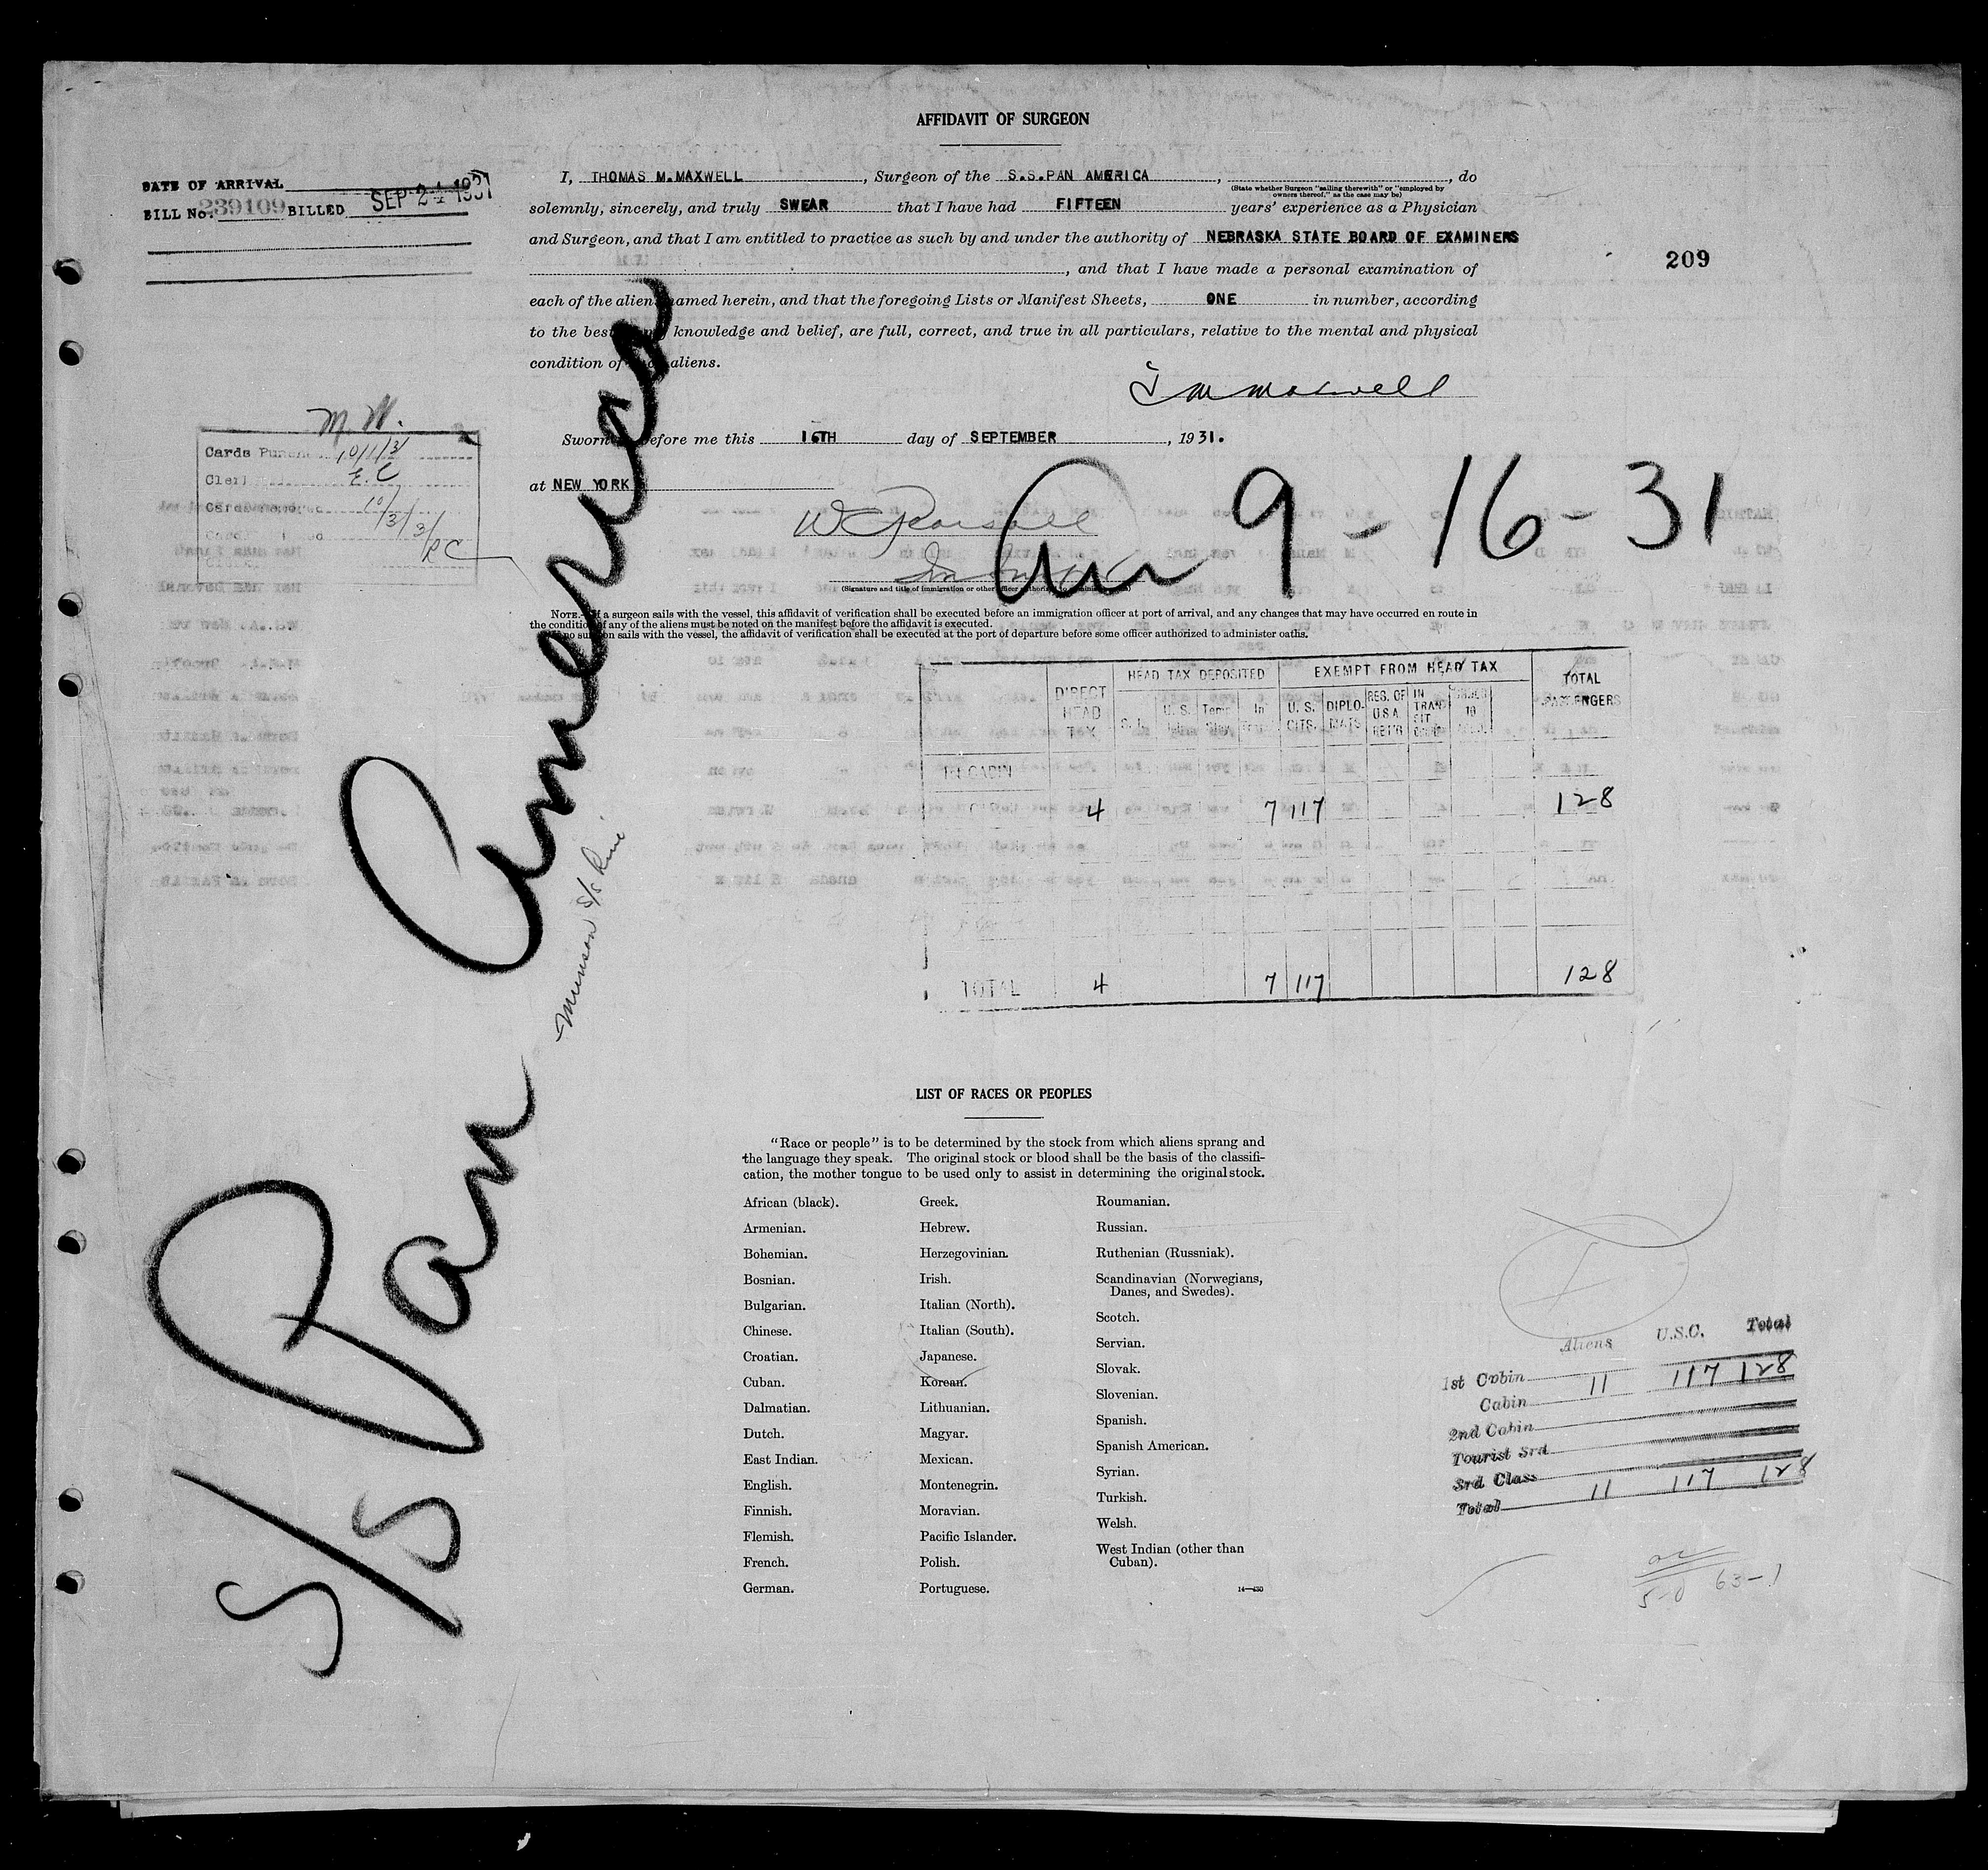 AFFIDAVIT OF SURGEON
DATE OF ARRIVAL
BILL No. 239109 BILLED SEP 24 1931
I, THOMAS M. MAXWELL, Surgeon of the S.S. PAN AMERICA, , do
(State whether Surgeon "sailing therewith" or "employed by owners thereof," as the case may be)
solemnly, sincerely, and truly SWEAR that I have had FIFTEEN years' experience as a Physician
and Surgeon, and that I am entitled to practice as such by and under the authority of NEBRASKA STATE BOARD OF EXAMINERS
, and that I have made a personal examination of
209
each of the aliens named herein, and that the foregoing Lists or Manifest Sheets, ONE in number, according
to the best knowledge and belief, are full, correct, and true in all particulars, relative to the mental and physical
condition of aliens.
T M Maxwell
Sworn before me this 16TH day of SEPTEMBER, 1931.
at NEW YORK
Arr 9-16-31
M. W.
Cards Punched 10/1/31
Clerk E. C
10/3/31
RC
(Signature and title of immigration or other officer authorized to administer oaths)
NOTE.—If a surgeon sails with the vessel, this affidavit of verification shall be executed before an immigration officer at port of arrival, and any changes that may have occurred en route in
the condition of any of the aliens must be noted on the manifest before the affidavit is executed.
If no surgeon sails with the vessel, the affidavit of verification shall be executed at the port of departure before some officer authorized to administer oaths.
S/S Pan America
Munson S/S Line
DIRECT HEAD TAX
HEAD TAX DEPOSITED
EXEMPT FROM HEAD TAX
TOTAL PASSENGERS
U. S. CITS. DIPLOMATS RES. OF U.S.A. RET'G IN TRANSIT
1st CABIN
4 7 117 128
TOTAL 4 7 117 128
LIST OF RACES OR PEOPLES
"Race or people" is to be determined by the stock from which aliens sprang and
the language they speak. The original stock or blood shall be the basis of the classifi-
cation, the mother tongue to be used only to assist in determining the original stock.
African (black).
Armenian.
Bohemian.
Bosnian.
Bulgarian.
Chinese.
Croatian.
Cuban.
Dalmatian.
Dutch.
East Indian.
English.
Finnish.
Flemish.
French.
German.
Greek.
Hebrew.
Herzegovinian.
Irish.
Italian (North).
Italian (South).
Japanese.
Korean.
Lithuanian.
Magyar.
Mexican.
Montenegrin.
Moravian.
Pacific Islander.
Polish.
Portuguese.
Roumanian.
Russian.
Ruthenian (Russniak).
Scandinavian (Norwegians,
Danes, and Swedes).
Scotch.
Servian.
Slovak.
Slovenian.
Spanish.
Spanish American.
Syrian.
Turkish.
Welsh.
West Indian (other than
Cuban).
14—430
Aliens U.S.C. Total
1st Cabin 11 117 128
Cabin
2nd Cabin
Tourist 3rd
3rd Class
Total 11 117 128
5-0 63-1